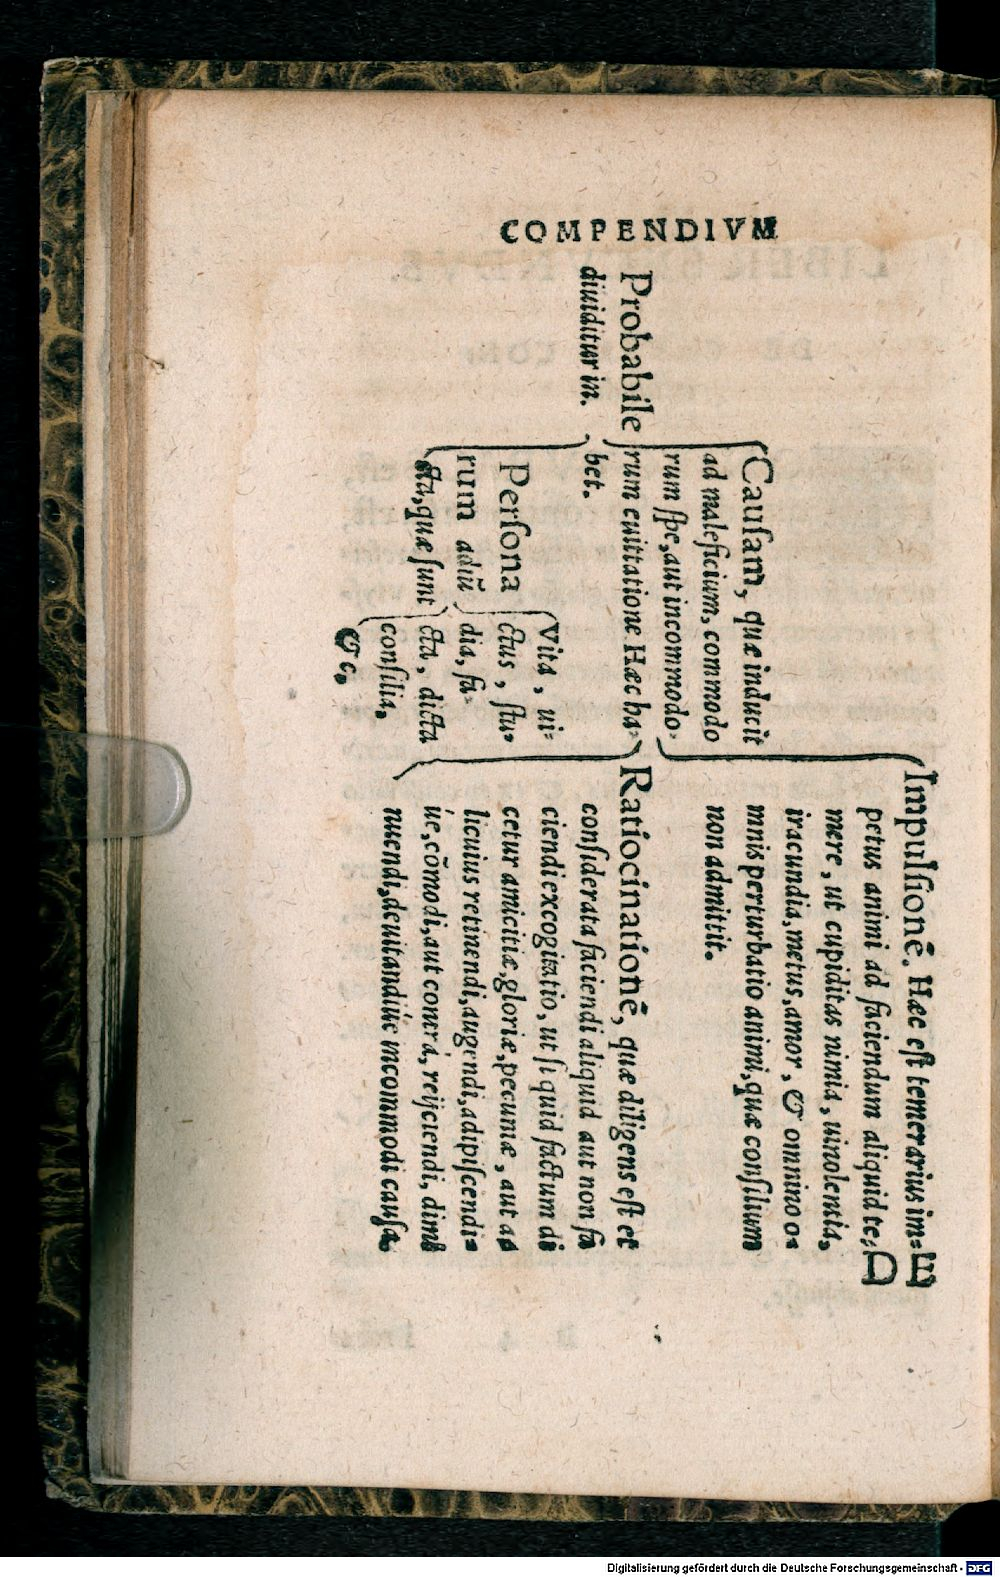 COMPENDIVM
Probabile
diuiditur in.
Causam, quæ inducit
ad maleficium, commodo
rum spe, aut incommodo-
rum euitatione Hæc ha-
bet.
Impulsionē. Hæc est temerarius im=
petus animi ad faciendum aliquid te=
mere, ut cupiditas nimia, uinolentia,
iracundia, metus, amor, & omnino o-
mnis perturbatio animi, quæ consilium
non admittit.
Ratiocinationē, quæ diligens est et
considerata faciendi aliquid aut non fa
ciendi excogitatio, ut si quid factum di
cetur amicitiæ, gloriæ, pecuniæ, aut a
licuius retinendi, augendi, adipiscendi-
úe, cōmodi, aut contrà, reijciendi, dimi
nuendi, deuitandiúe incommodi causa.
Persona
rum adiū
cta, quæ sunt
Vita, ui=
ctus, stu-
dia, fa-
cta, dicta
consilia,
& c.
E
D
Digitalisierung gefördert durch die Deutsche Forschungsgemeinschaft - DFG